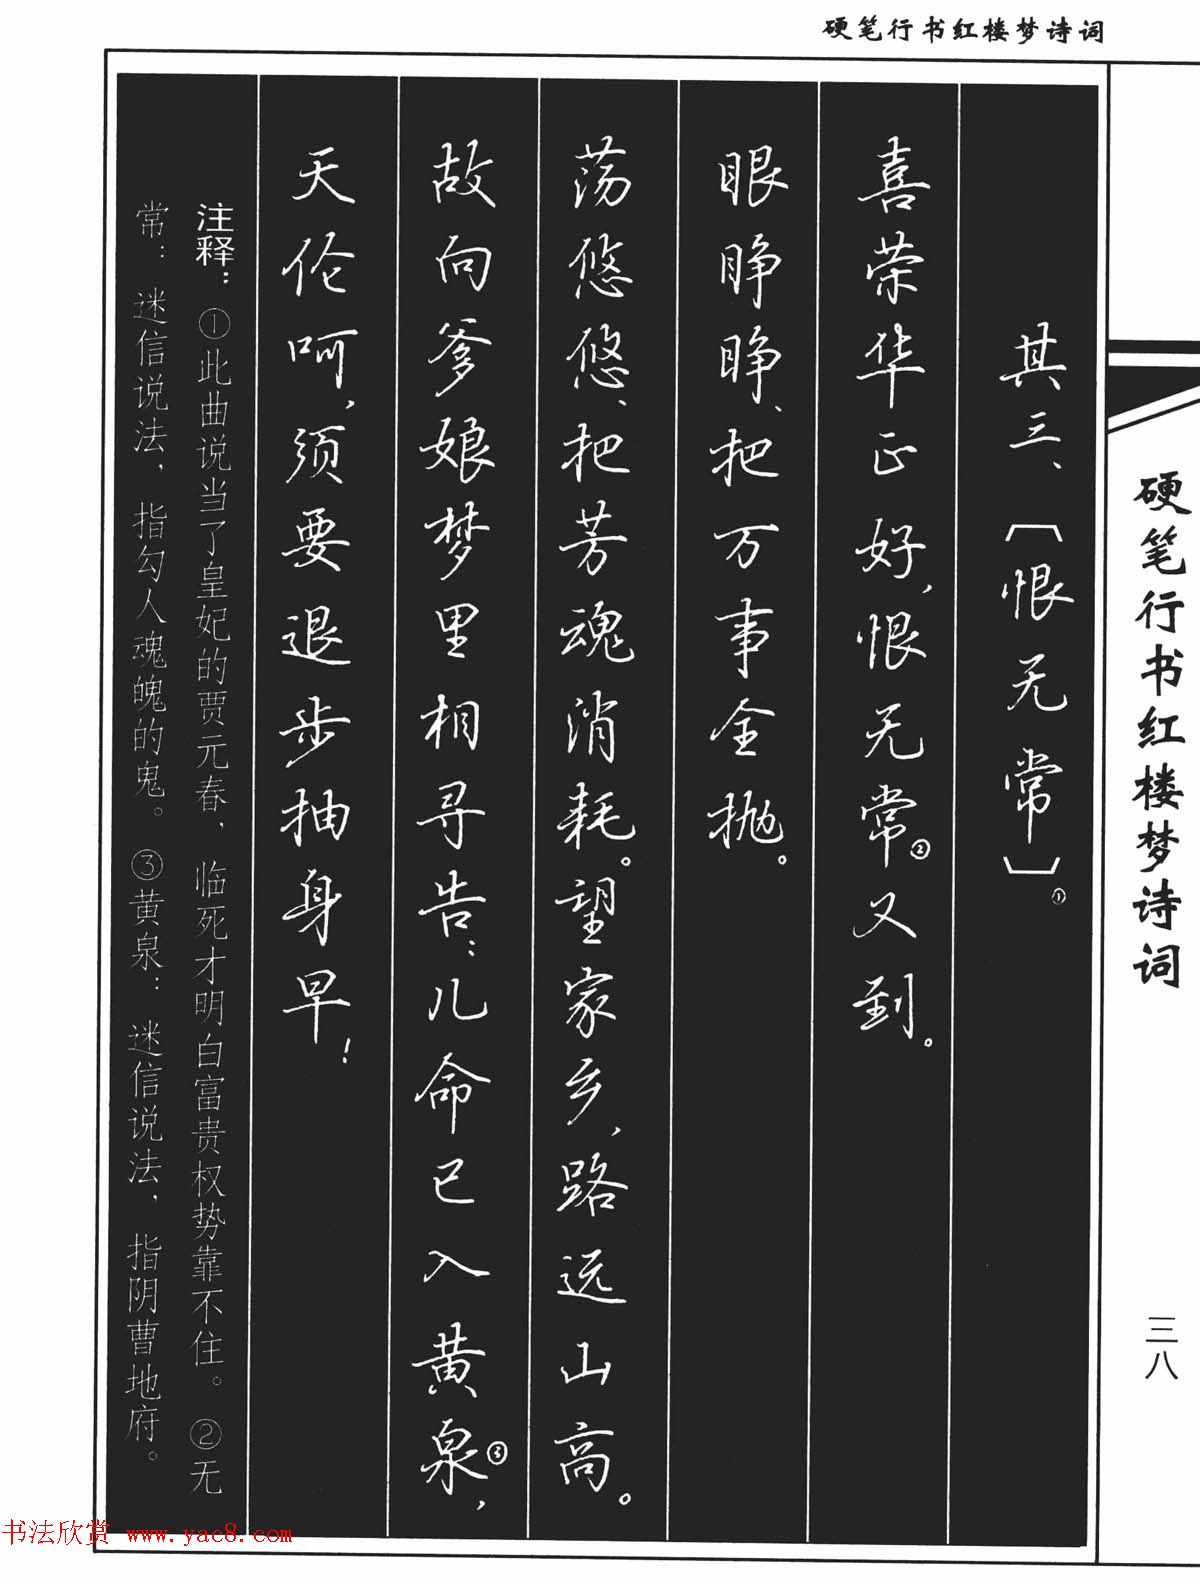 硬笔行书红楼梦诗词
硬笔行书红楼梦诗词
三八
其三、〔恨无常〕①
喜荣华正好,恨无常②又到。
眼睁睁、把万事全抛。
荡悠悠、把芳魂消耗。望家乡,路远山高。
故向爹娘梦里相寻告:儿命已入黄泉③,
天伦呵,须要退步抽身早!
注释:①此曲说当了皇妃的贾元春,临死才明白富贵权势靠不住。②无
常:迷信说法,指勾人魂魄的鬼。③黄泉:迷信说法,指阴曹地府。
书法欣赏 www.yac8.com